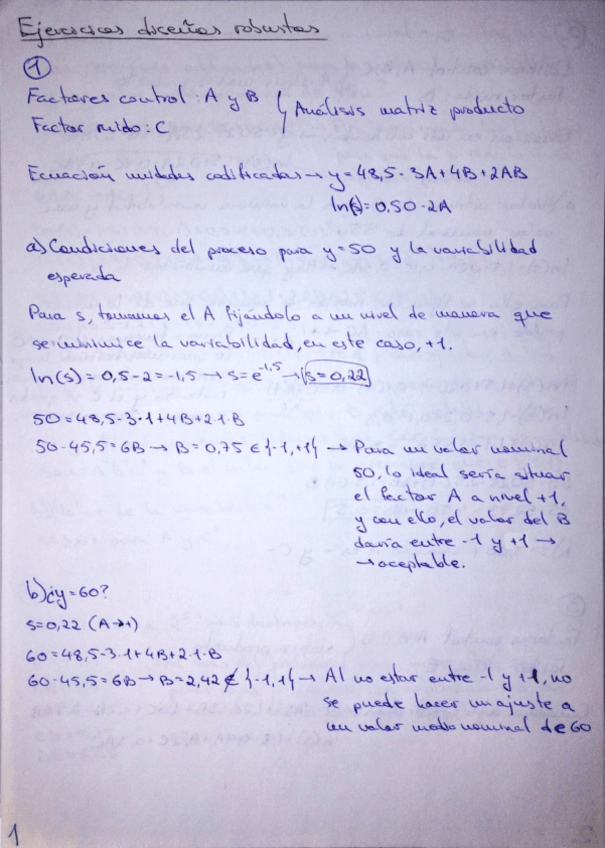 Ejercicios diseños robustos
1
Factores control: A y B
Factor ruido: C
Análisis matriz producto
Ecuación unidades codificadas → y = 48,5 - 3A + 4B + 2AB
ln(s) = 0,50 - 2A
a) Condiciones del proceso para y=50 y la variabilidad
esperada
Para s, tomamos el A fijándolo a un nivel de manera que
se minimice la variabilidad, en este caso, +1.
ln(s) = 0,5 - 2 = -1,5 → s = e^-1,5 → s = 0,22
50 = 48,5 - 3·1 + 4B + 2·1·B
50 - 45,5 = 6B → B = 0,75 ∈ {-1, +1} → Para un valor nominal
50, lo ideal sería situar
el factor A a nivel +1,
y con ello, el valor del B
daría entre -1 y +1 →
→ aceptable.
b) ¿y=60?
s = 0,22 (A→1)
60 = 48,5 - 3·1 + 4B + 2·1·B
60 - 45,5 = 6B → B = 2,42 ∉ {-1, 1} → Al no estar entre -1 y +1, no
se puede hacer un ajuste a
un valor nominal de 60
1